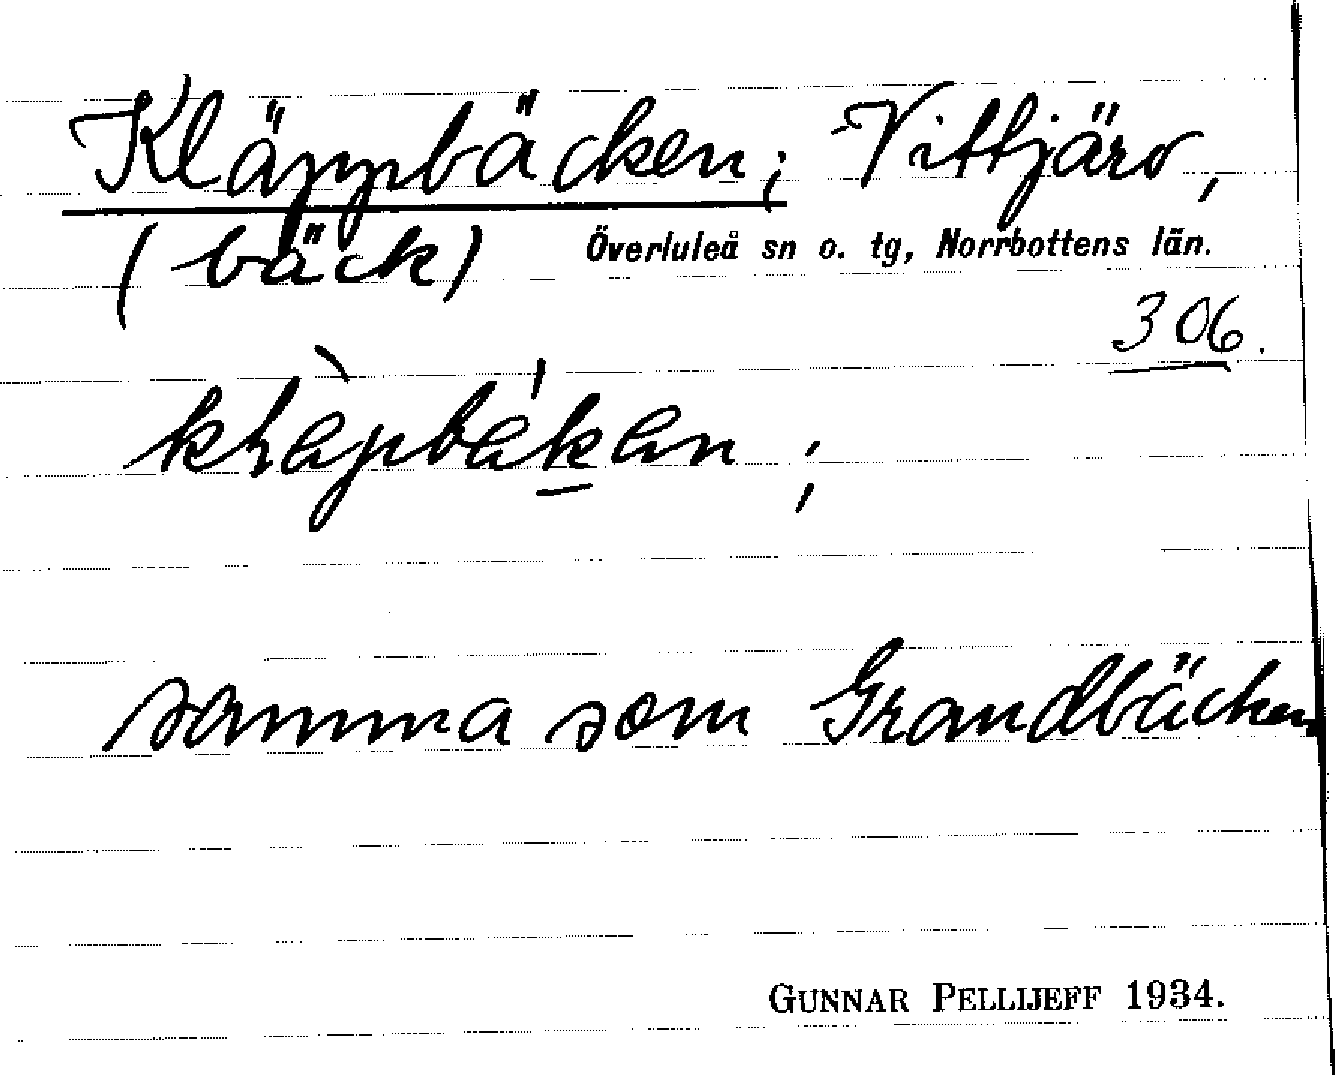 Kläppbäcken; Vittjärv,
(bäck) Överluleå sn o. tg, Norrbottens län.
306.
samma som Grandbäcken
GUNNAR PELLIJEFF 1934.